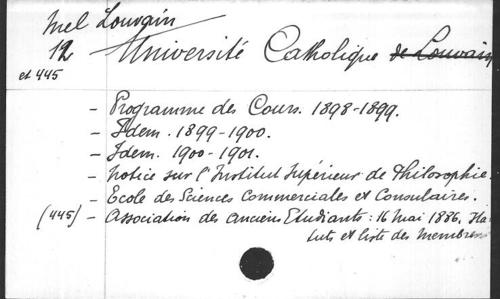 Mel Louvain
12 Université Catholique de Louvain
et 445
- Programme des Cours. 1898-1899.
- Idem. 1899-1900.
- Idem. 1900-1901.
- Notice sur l'Institut Supérieur de Philosophie.
- Ecole des Sciences Commerciales et Consulaires.
(445) - Association des anciens Etudiants: 16 Mai 1886. Sta
tuts et liste des membres